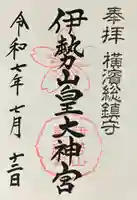 奉拝 横濱総鎮守
伊勢山皇大神宮
令和七年七月十二日